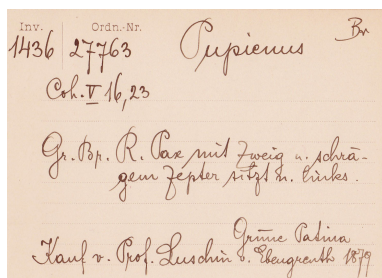 Inv. Ordn.-Nr. Br
1436 27763 Pupienus
Coh. V 16,23
Gr. Bp. R. Pax mit Zweig u. schrä-
gem Zepter sitzt n. links.
Grüne Patina
Kauf v. Prof. Luschin v. Ebengreuth 1879